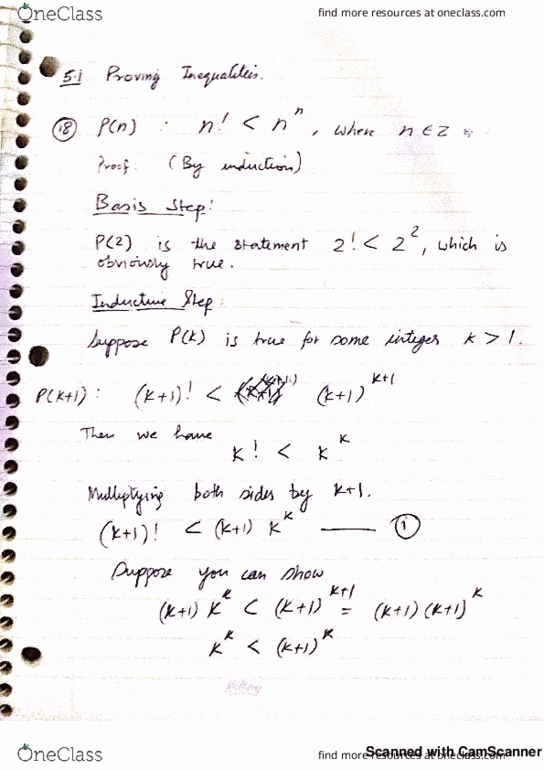 OneClass
find more resources at oneclass.com
5.1 Proving Inequalities.
(18) P(n) : n! < n^n, where n ∈ Z
Proof: (By induction)
Basis Step:
P(2) is the statement 2! < 2^2, which is
obviously true.
Inductive Step:
Suppose P(k) is true for some integer k > 1.
P(k+1) : (k+1)! < (k+1)^k+1
Then we have
k! < k^k
Multiplying both sides by k+1.
(k+1)! < (k+1) k^k —— (1)
Suppose you can show
(k+1) k^k < (k+1)^k+1 = (k+1)(k+1)^k
k^k < (k+1)^k
OneClass
find more resources at oneclass.com
Scanned with CamScanner